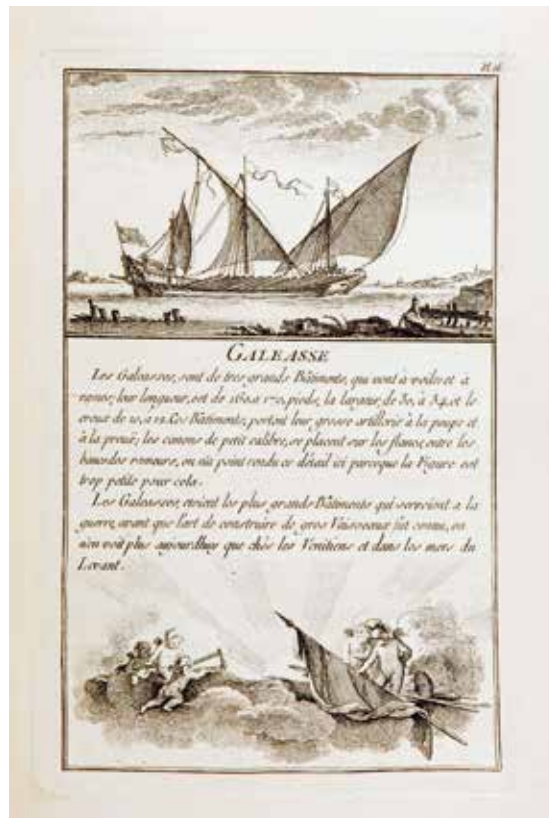 Pl. 16
GALEASSE
Les Galeasses, sont de tres grands Bâtiments, qui vont à voiles et à
rames; leur longueur, est de 160 a 170. pieds, la largeur, de 30, à 34. et le
creux de 10, a 12. Ces Bâtiments, portent leur, grosse artillerie à la poupe et
à la prouë; les canons de petit calibre, se placent sur les flancs, entre les
bancs des rameurs, on n'a point rendu ce détail ici parceque la Figure est
trop petite pour cela.
Les Galeasses, etoient les plus grands Bâtiments qui servoient a la
guerre, avant que l'art de construire de gros Vaisseaux fût connu, on
n'en voit plus aujourdhuy que chés les Venitiens et dans les mers du
Levant.